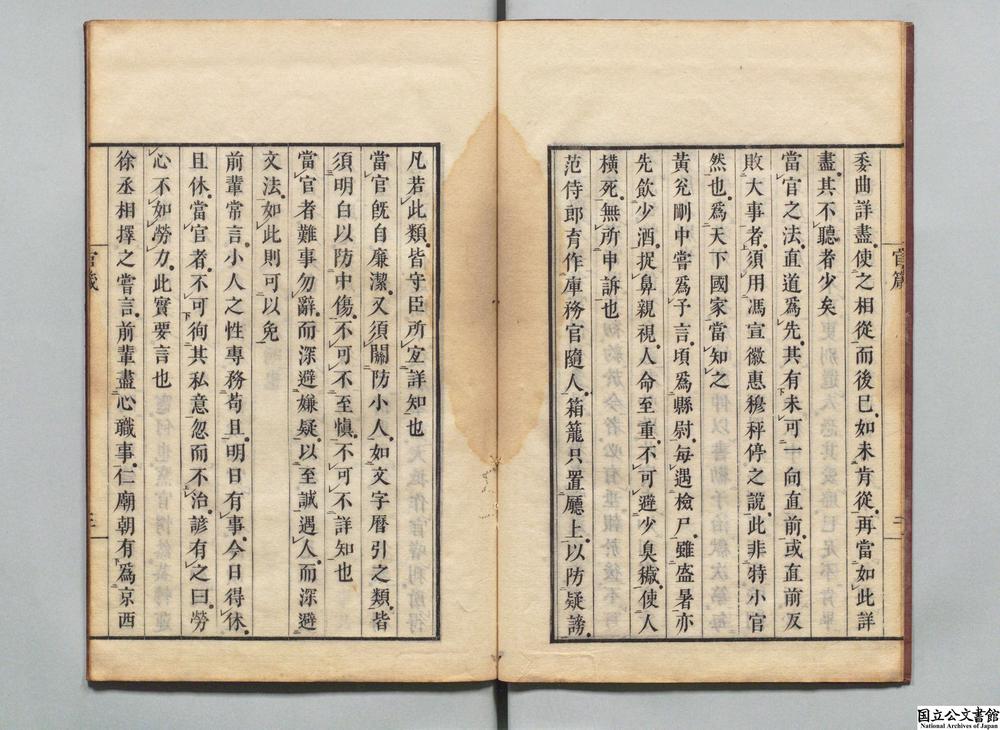 委曲詳盡使之相從而後已如未肯從再當如此詳
盡其不聽者少矣
當官之法直道爲先其有未可一向直前或直前反
敗大事者須用馮宣徽惠穆秤停之說此非特小官
然也爲天下國家當知之
黃兊剛中嘗爲予言頃爲縣尉每遇檢尸雖盛暑亦
先飲少酒捉鼻親視人命至重不可避少臭穢使人
橫死無所申訴也
范侍郎育作庫務官隨人箱籠只置廳上以防疑謗
凡若此類皆守臣所宜詳知也
當官旣自廉潔又須關防小人如文字曆引之類皆
須明白以防中傷不可不至愼不可不詳知也
當官者難事勿辭而深避嫌疑以至誠遇人而深避
文法如此則可以免
前輩常言小人之性專務苟且明日有事今日得休
且休當官者不可徇其私意忽而不治諺有之曰勞
心不如勞力此實要言也
徐丞相擇之嘗言前輩盡心職事仁廟朝有爲京西
官箴
二
官箴
三
国立公文書館
National Archives of Japan